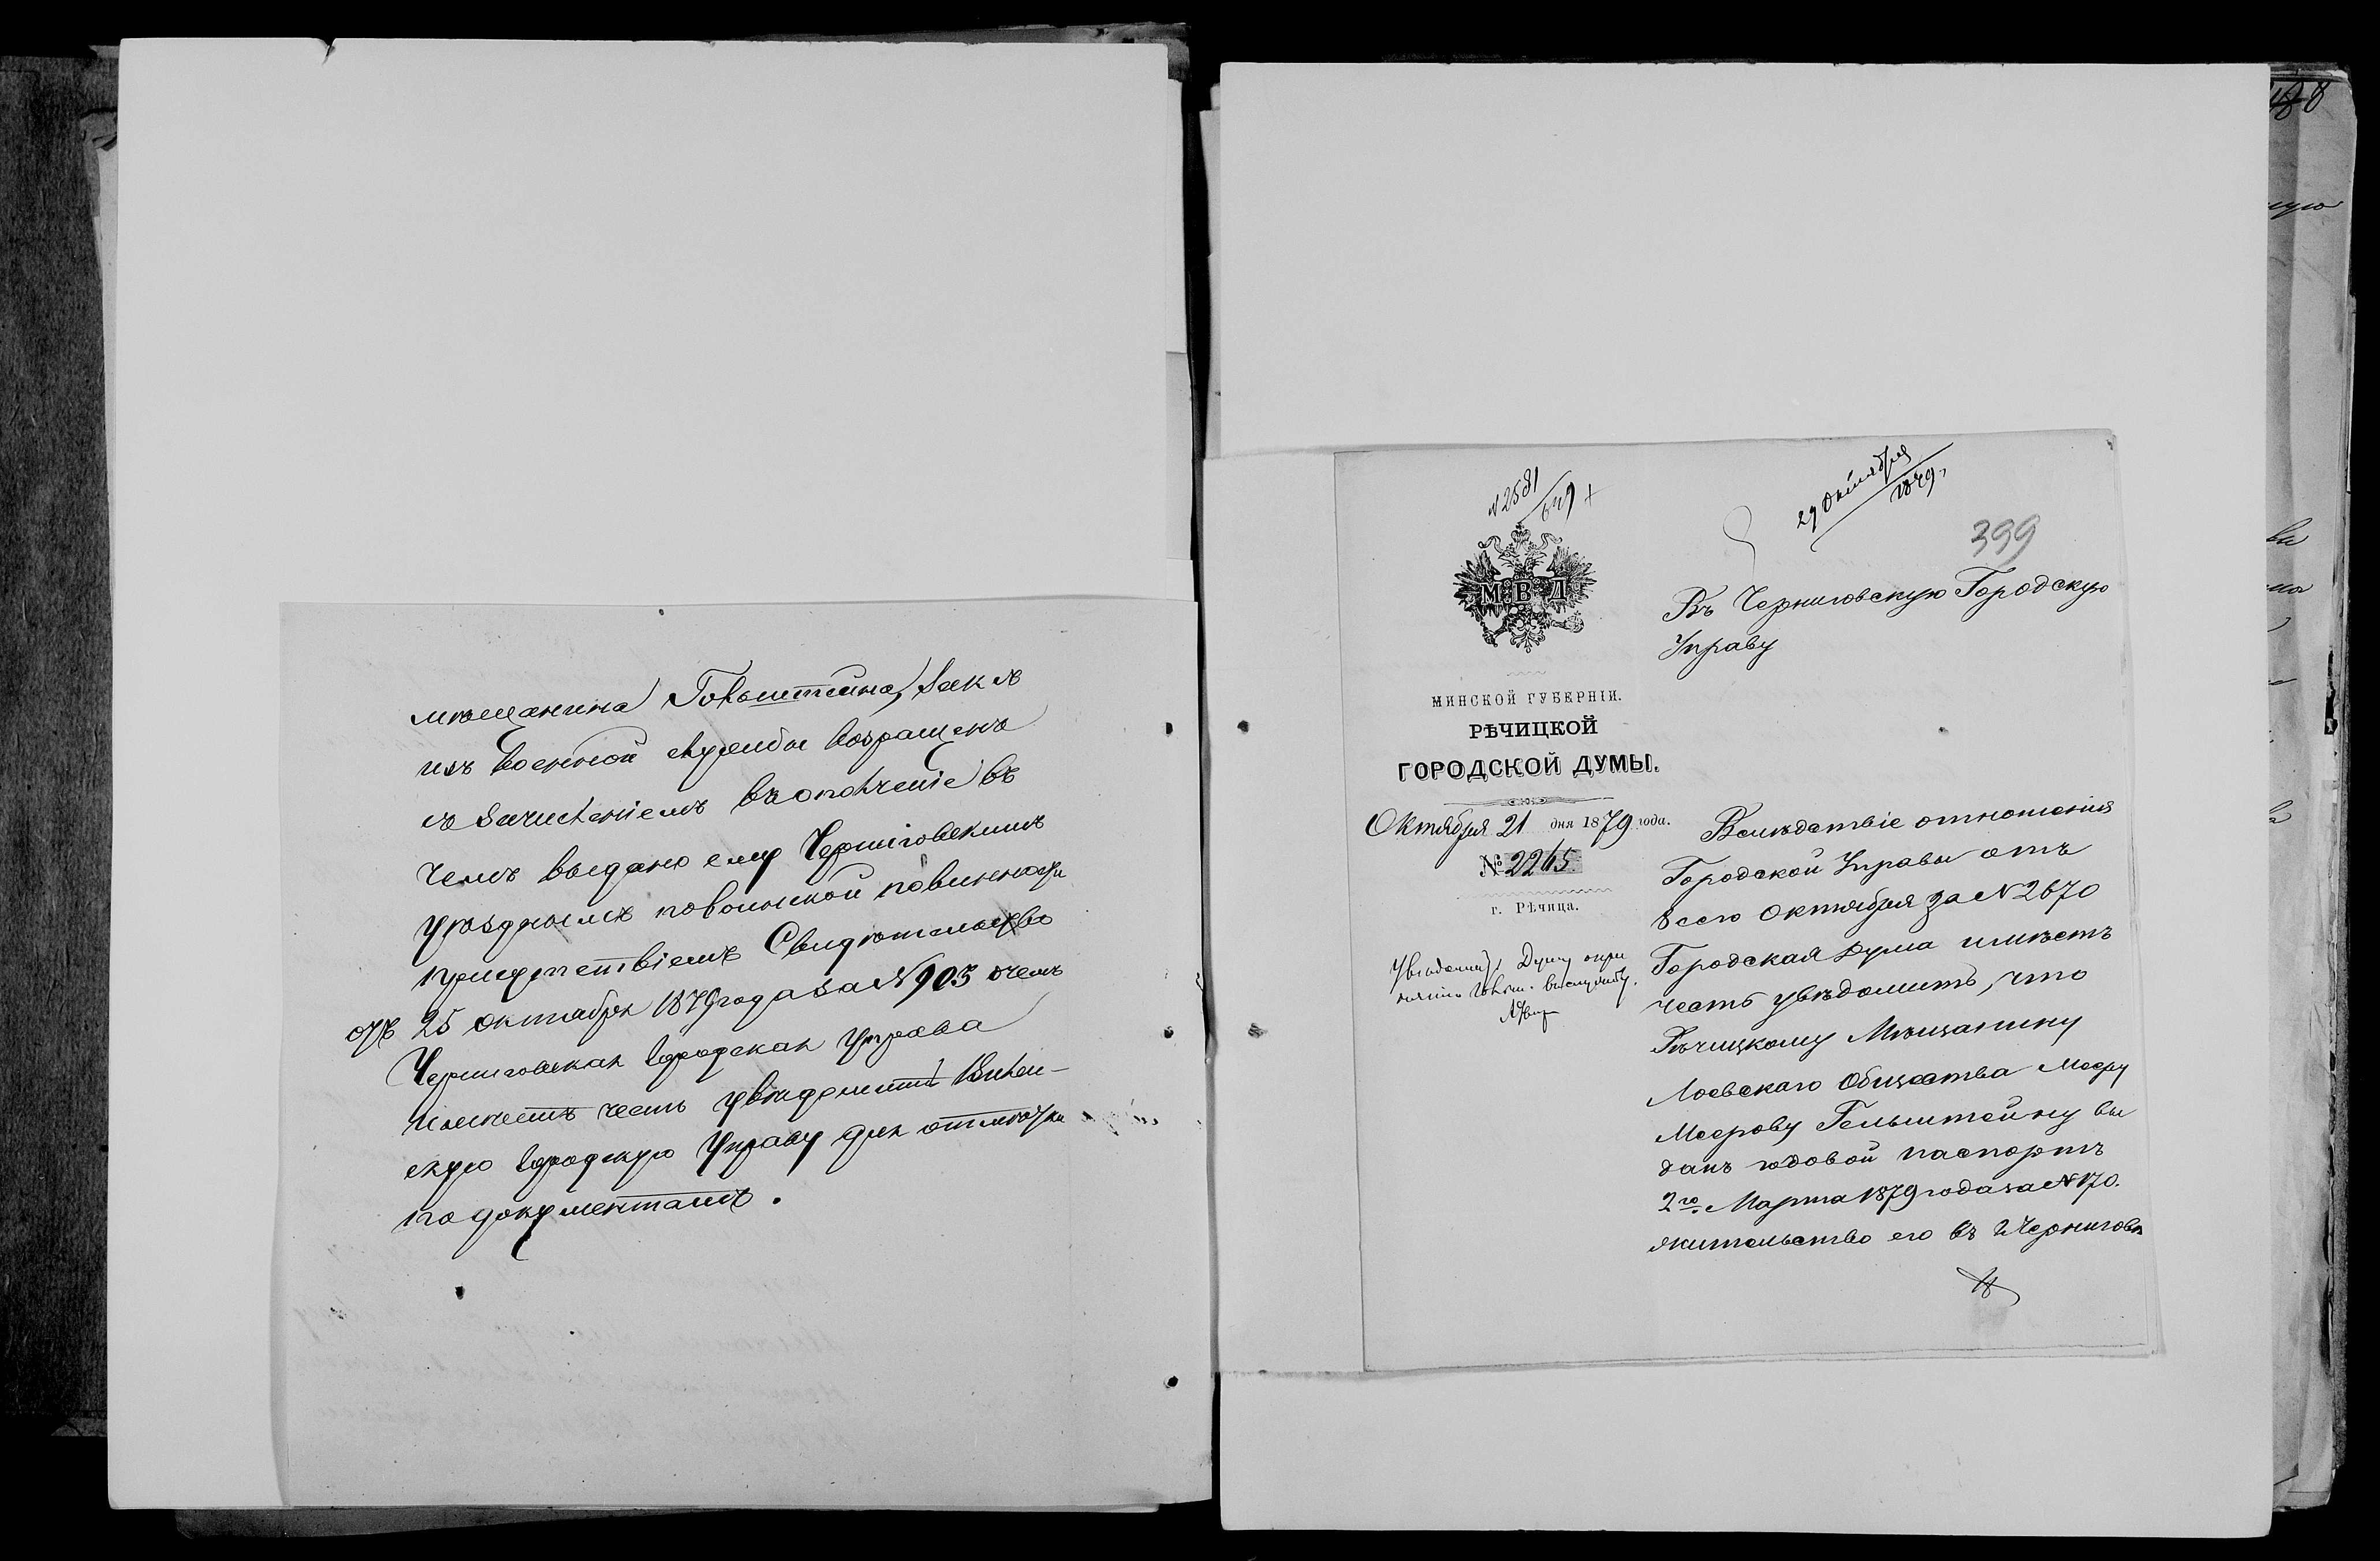 мѣщанина Гольштейна, Закъ
изъ военной службы возращенъ
съ зачисленіемъ въ ополченіе въ
чемъ выдано ему Черниговскимъ
уѣзднымъ по воинской повинности
присутствіемъ Свидѣтельство
отъ 25 октября 1879 года за № 903 о чемъ
Черниговская городская Управа
имѣетъ честь увѣдомить Вилен-
скую городскую Управу для отмѣтки
по документамъ.
488
№ 2581
29 Октября
1879 г.
399
М.В.Д.
Въ Черниговскую Городскую
Управу
МИНСКОЙ ГУБЕРНІИ.
РѢЧИЦКОЙ
ГОРОДСКОЙ ДУМЫ.
Октября 21 дня 1879 года.
№ 2265.
г. Рѣчица.
Думу о при
Вслѣдствіе отношенія
Городской Управы отъ
8 сего Октября за № 2670
Городская Дума имѣетъ
честь увѣдомить, что
Рѣчицкому Мѣщанину
Лоевскаго Общества Мееру
Меерову Гельштейну вы
данъ годовой паспортъ
2го Марта 1879 года за № 170.
жительство его въ Черниговѣ